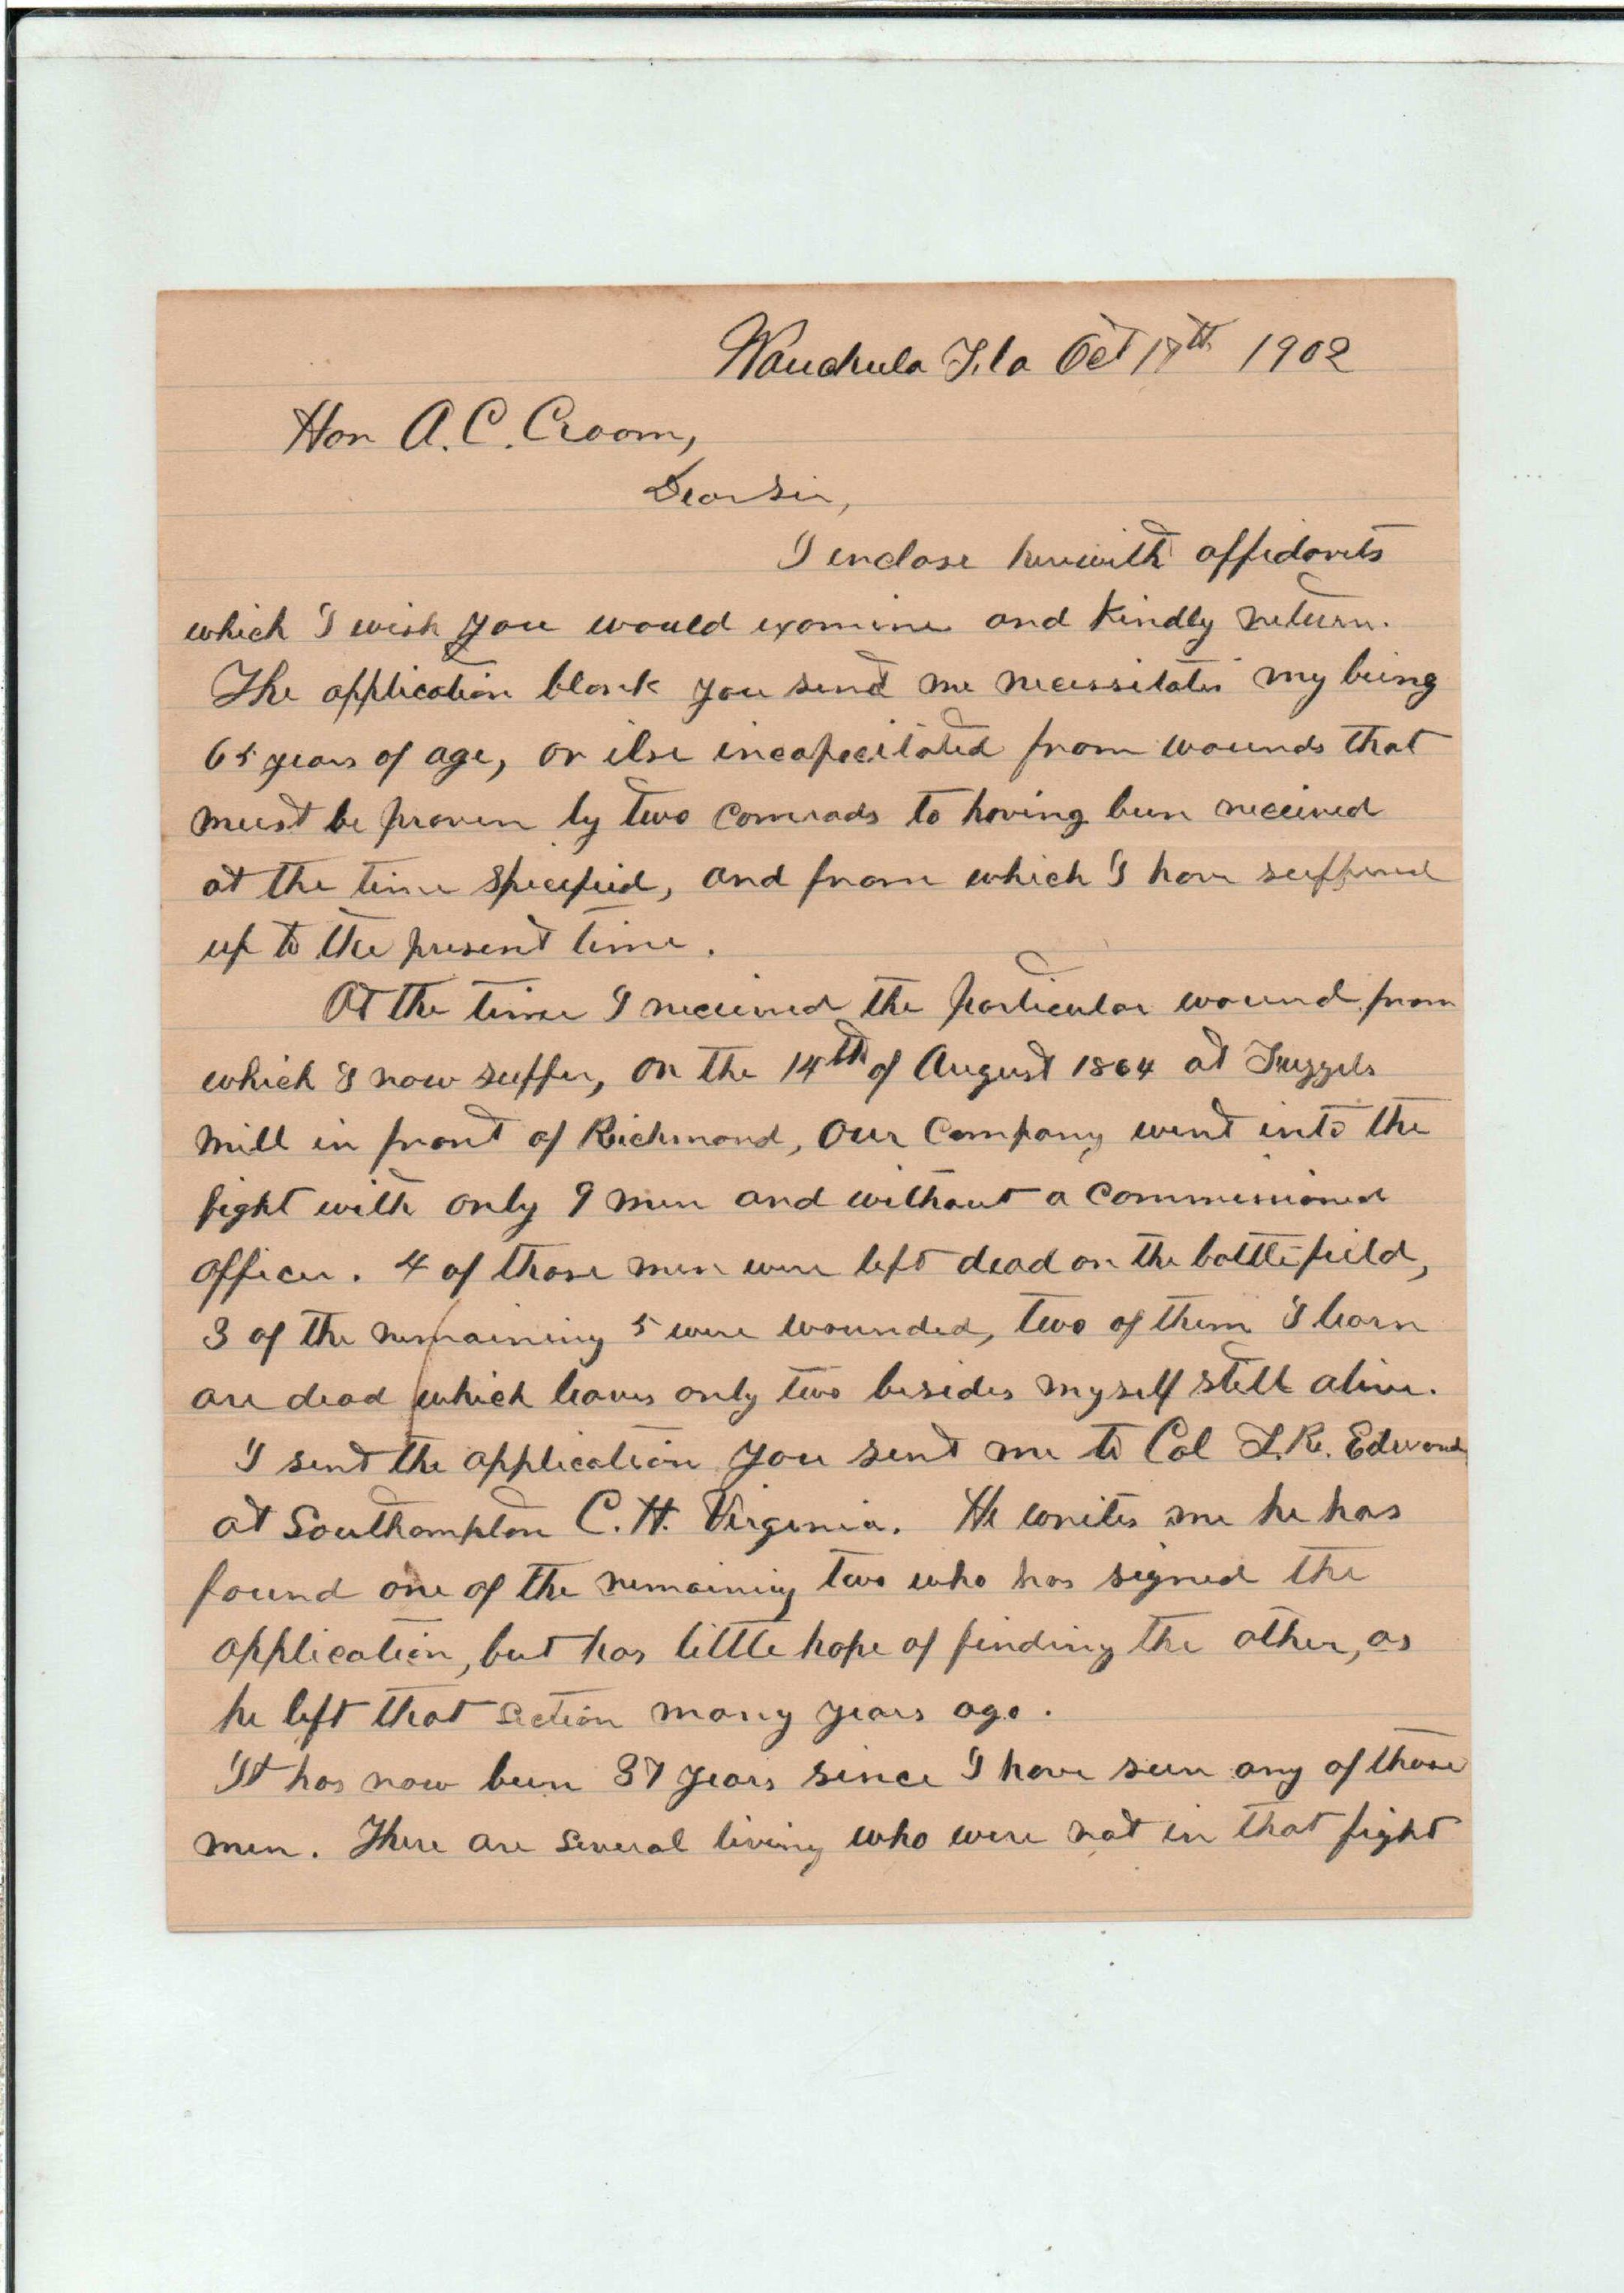 Wauchula Fla Oct 17th 1902
Hon A. C. Croom,
Dear Sir,
I enclose herewith affidavits
which I wish you would examine and kindly return.
The application blank you send me necessitates my being
65 years of age, or else incapacitated from wounds that
must be proven by two comrads to having been received
at the time specified, and from which I have suffered
up to the present time.
At the time I received the particular wound from
which I now suffer, on the 14th of August 1864 at Fuzzels
Mill in front of Richmond, Our Company went into the
fight with only 9 men and without a commissioned
officer. 4 of those men were left dead on the battlefield,
3 of the remaining 5 were wounded, two of them I learn
are dead which leaves only two besides myself still alive.
I sent the application you sent me to Col L. R. Edwards
at Southampton C. H. Virginia. He writes me he has
found one of the remaining two who has signed the
application, but has little hope of finding the other, as
he left that section many years ago.
It has now been 37 years since I have seen any of those
men. There are several living who were not in that fight